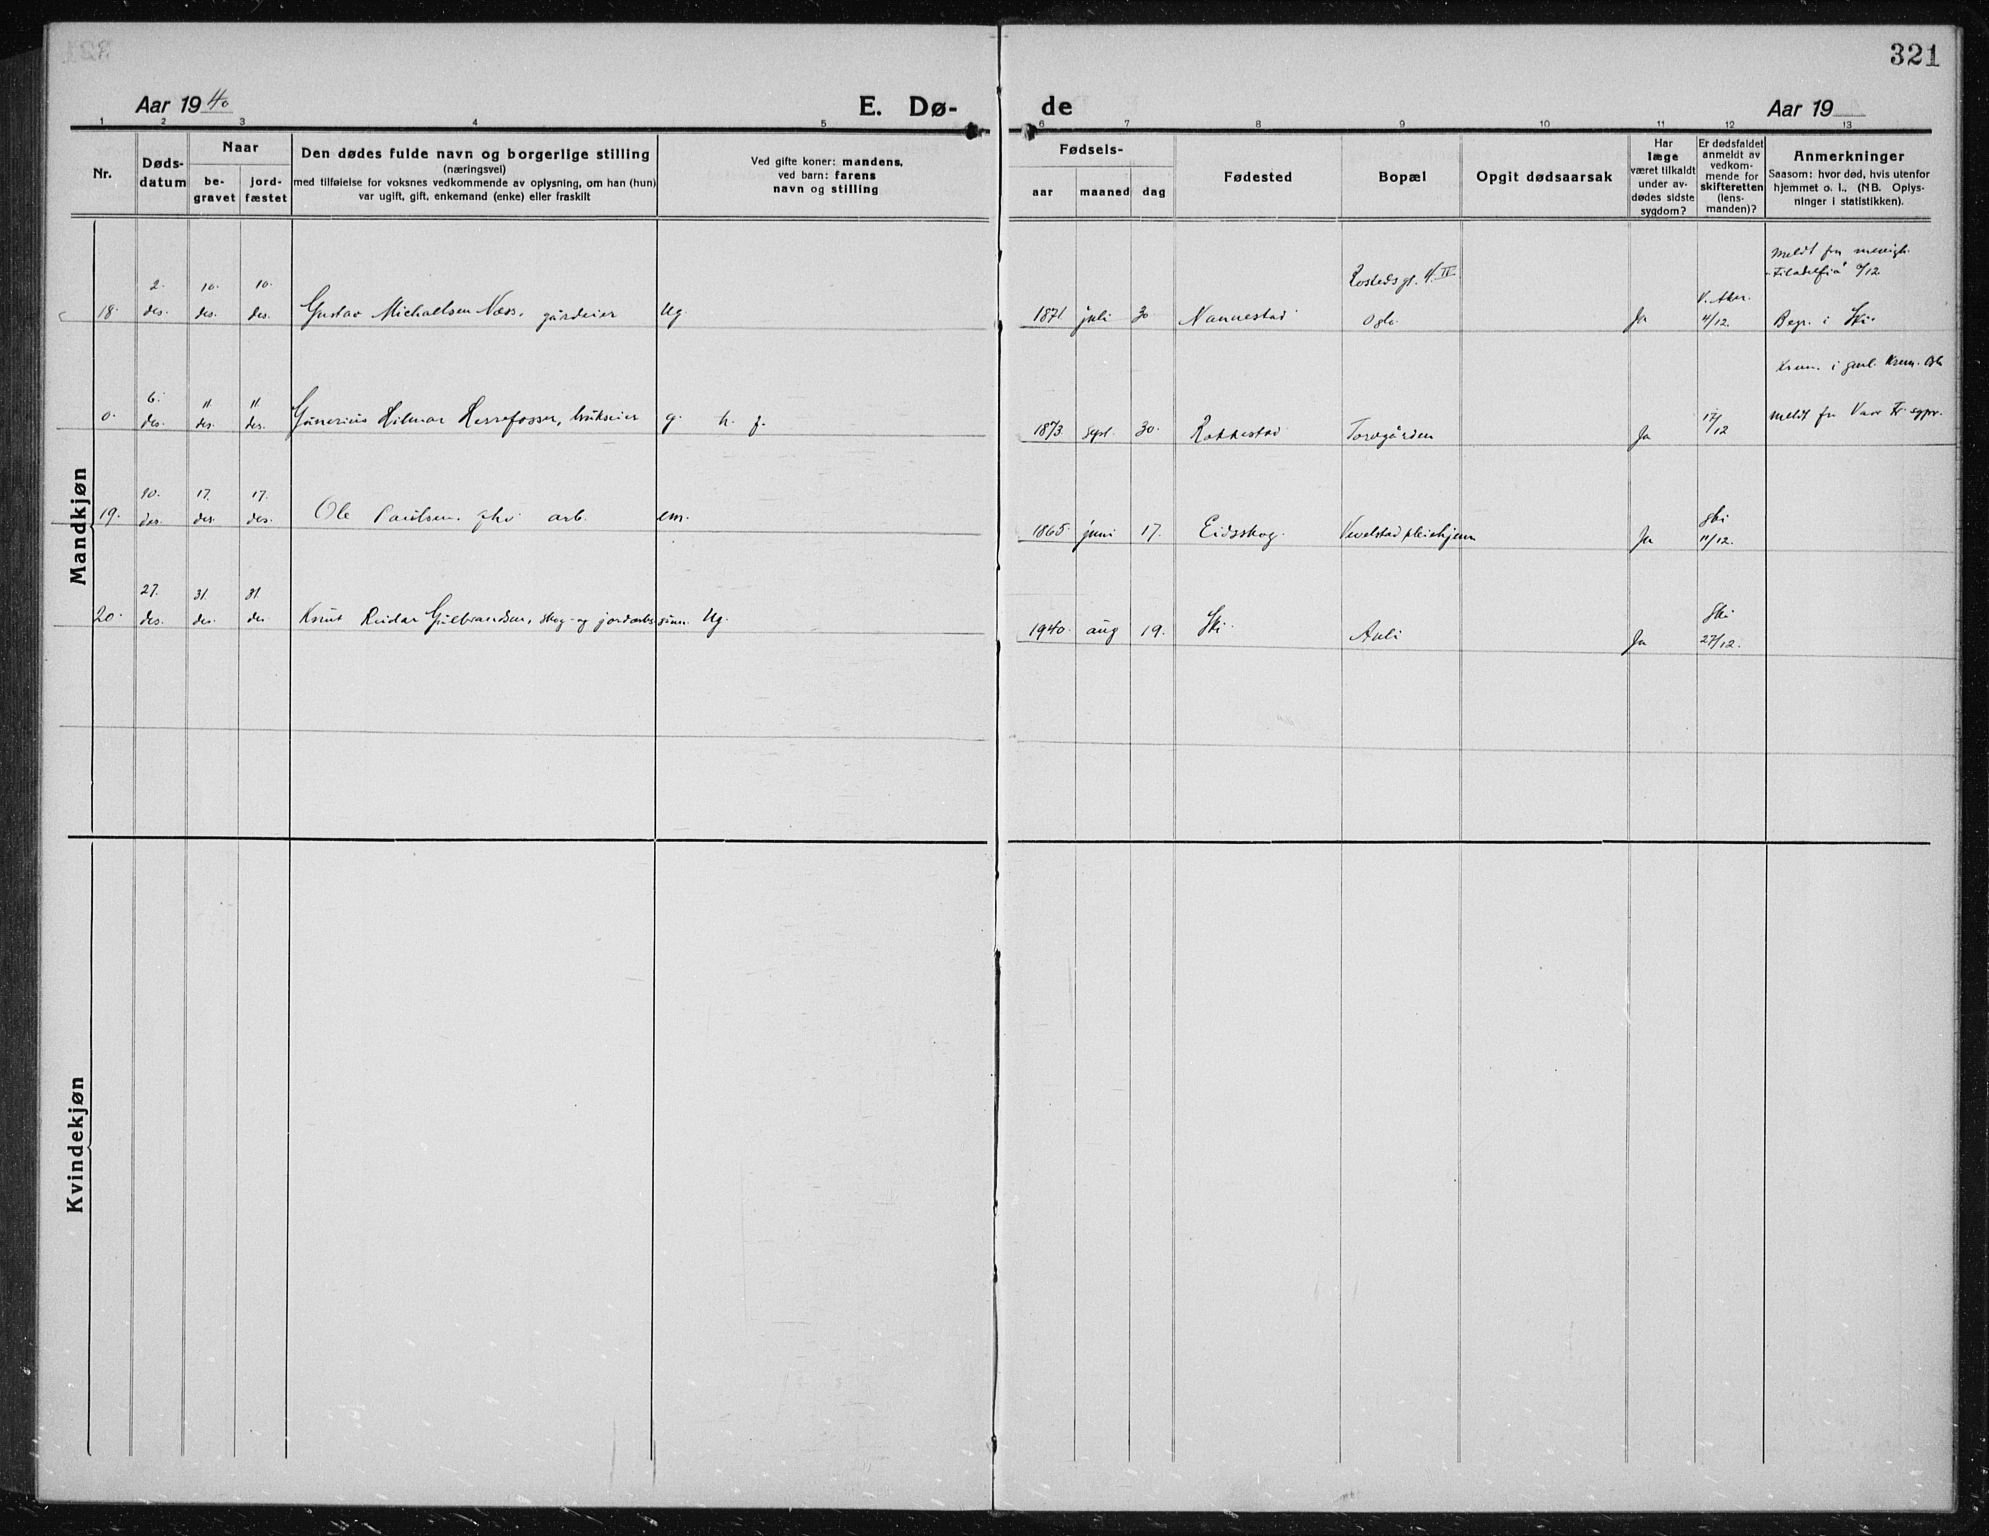 321
Aar 1940
E. Dø-
de
Aar 19
1 2 3 4 5 6 7 8 9 10 11 12 13
Nr.
Døds-
datum
Naar
be-
gravet
jord-
fæstet
Den dødes fulde navn og borgerlige stilling
(næringsvei)
med tilføielse for voksnes vedkommende av oplysning, om han (hun)
var ugift, gift, enkemand (enke) eller fraskilt
Ved gifte koner: mandens,
ved barn: farens
navn og stilling
Fødsels-
aar maaned dag
Fødested
Bopæl
Opgit dødsaarsak
Har
læge
været tilkaldt
under av-
dødes sidste
sygdom?
Er dødsfaldet
anmeldt av
vedkom-
mende for
skifteretten
(lens-
manden)?
Anmerkninger
Saasom: hvor død, hvis utenfor
hjemmet o. l., (NB. Oplys-
ninger i statistikken).
Mandkjøn
2. 10. 10.
18. des. des. des. Gustav Michaelsen Næss, gårdeier Ug.
Rostedsgt. 4 II
1871 juli 30 Nannestad Oslo Ja
V. Aker.
4/12.
Meldt fra menigh.
"Filadelfia" 9/12
Begr. i Ski
6. 11. 11.
0. des. des. des. Gunerius Hilmar Herrefosser, brukseier g. h. f.
1873 sept. 30. Rakkestad Torvgården Ja
17/12
Krem. i
meldt fra
10. 17. 17.
19. des. des. des. Ole Paulsen, arb. em.
1865 juni 17. Eidsskog. Vevelstad pleiehjem Ja
Ski
11/12.
27. 31. 31.
20. des. des. des. Knut Reidar Gulbrandsen, skog- og jordarb. sønn. Ug.
1940. aug 19. Ski. Auli Ja
Ski
27/12.
Kvindekjøn